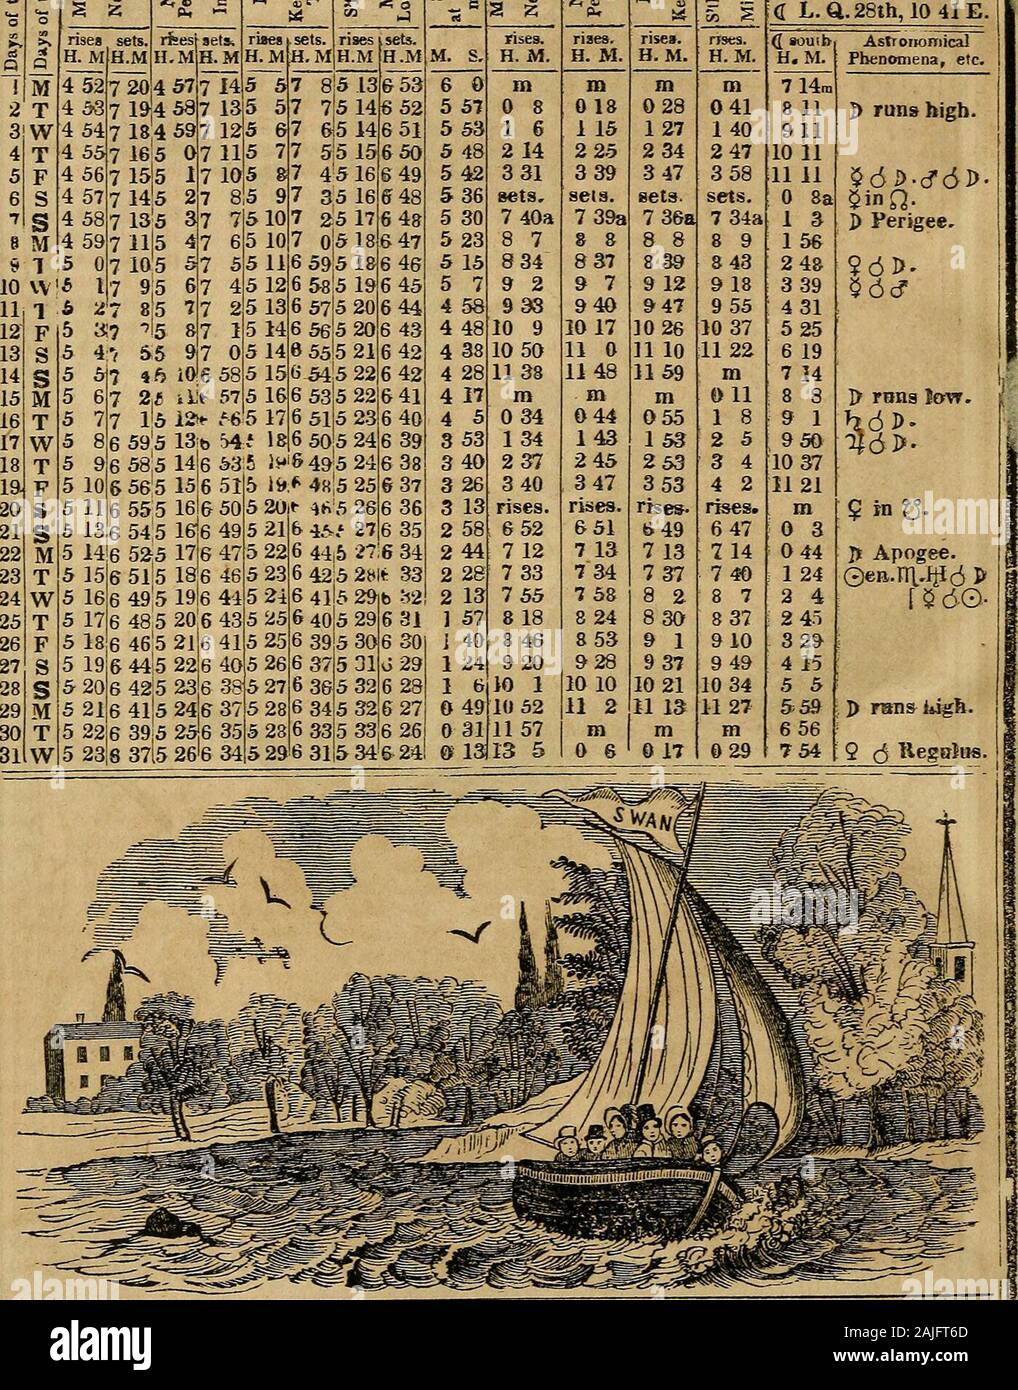 ☾ L. Q. 28th, 10 41 E.
Days of t Days of t
rises sets. rises sets. rises sets. rises sets. rises. rises. rises. rises. ☾ south Astronomical
H. M H.M H. M H. M H. M H. M H. M H.M M. S. H. M. H. M. H. M. H. M. H. M. Phenomena, etc.
1 M 4 52 7 20 4 57 7 14 5 5 7 8 5 13 6 53 6 0 m m m m 7 14m
2 T 4 53 7 19 4 58 7 13 5 5 7 7 5 14 6 52 5 57 0 8 0 18 0 28 0 41 8 11 ☽ runs high.
3 W 4 54 7 18 4 59 7 12 5 6 7 6 5 14 6 51 5 53 1 6 1 15 1 27 1 40 9 11
4 T 4 55 7 16 5 0 7 11 5 7 7 5 5 15 6 50 5 48 2 14 2 25 2 34 2 47 10 11
5 F 4 56 7 15 5 1 7 10 5 8 7 4 5 16 6 49 5 42 3 31 3 39 3 47 3 58 11 11 ☿ ☌ ☽. ♂ ☌ ☽.
6 S 4 57 7 14 5 2 7 8 5 9 7 3 5 16 6 48 5 36 sets. sets. sets. sets. 0 8a ☿ in ☊.
7 S 4 58 7 13 5 3 7 7 5 10 7 2 5 17 6 48 5 30 7 40a 7 39a 7 36a 7 34a 1 3 ☽ Perigee.
8 M 4 59 7 11 5 4 7 6 5 10 7 0 5 18 6 47 5 23 8 7 8 8 8 8 8 9 1 56
9 T 5 0 7 10 5 5 7 5 5 11 6 59 5 18 6 46 5 15 8 34 8 37 8 39 8 43 2 48 ♀ ☌ ☽.
10 W 5 1 7 9 5 6 7 4 5 12 6 58 5 19 6 45 5 7 9 2 9 7 9 12 9 18 3 39 ☿ ☌ ♂
11 T 5 2 7 8 5 7 7 2 5 13 6 57 5 20 6 44 4 58 9 33 9 40 9 47 9 55 4 31
12 F 5 3 7 5 8 7 1 5 14 6 56 5 20 6 43 4 48 10 9 10 17 10 26 10 37 5 25
13 S 5 4 7 5 5 9 7 0 5 14 6 55 5 21 6 42 4 38 10 50 11 0 11 10 11 22 6 19
14 S 5 5 7 4 5 10 6 58 5 15 6 54 5 22 6 42 4 28 11 38 11 48 11 59 m 7 14
15 M 5 6 7 2 5 11 6 57 5 16 6 53 5 22 6 41 4 17 m m m 0 11 8 8 ☽ runs low.
16 T 5 7 7 1 5 12 6 56 5 17 6 51 5 23 6 40 4 5 0 34 0 44 0 55 1 8 9 1 ♄ ☌ ☽.
17 W 5 8 6 59 5 13 6 54 5 18 6 50 5 24 6 39 3 53 1 34 1 43 1 53 2 5 9 50 ♃ ☌ ☽.
18 T 5 9 6 58 5 14 6 53 5 19 6 49 5 24 6 38 3 40 2 37 2 45 2 53 3 4 10 37
19 F 5 10 6 56 5 15 6 51 5 19 6 48 5 25 6 37 3 26 3 40 3 47 3 53 4 2 11 21
20 S 5 11 6 55 5 16 6 50 5 20 6 46 5 26 6 36 3 13 rises. rises. rises. rises. m ♀ in ☋.
21 S 5 13 6 54 5 16 6 49 5 21 6 45 5 27 6 35 2 58 6 52 6 51 6 49 6 47 0 3
22 M 5 14 6 52 5 17 6 47 5 22 6 44 5 27 6 34 2 44 7 12 7 13 7 13 7 14 0 44 ☽ Apogee.
23 T 5 15 6 51 5 18 6 46 5 23 6 42 5 28 6 33 2 28 7 33 7 34 7 37 7 40 1 24 ☉en.♍.♅☌☽
24 W 5 16 6 49 5 19 6 44 5 24 6 41 5 29 6 32 2 13 7 55 7 58 8 2 8 7 2 4 [☿☌☉.
25 T 5 17 6 48 5 20 6 43 5 25 6 40 5 29 6 31 1 57 8 18 8 24 8 30 8 37 2 45
26 F 5 18 6 46 5 21 6 41 5 25 6 39 5 30 6 30 1 40 8 46 8 53 9 1 9 10 3 29
27 S 5 19 6 44 5 22 6 40 5 26 6 37 5 31 6 29 1 24 9 20 9 28 9 37 9 49 4 15
28 S 5 20 6 42 5 23 6 38 5 27 6 36 5 32 6 28 1 6 10 1 10 10 10 21 10 34 5 5
29 M 5 21 6 41 5 24 6 37 5 28 6 34 5 32 6 27 0 49 10 52 11 2 11 13 11 27 5 59 ☽ runs high.
30 T 5 22 6 39 5 25 6 35 5 28 6 33 5 33 6 26 0 31 11 57 m m m 6 56
31 W 5 23 6 37 5 26 6 34 5 29 6 31 5 34 6 24 0 13 13 5 0 6 0 17 0 29 7 54 ♀ ☌ Regulus.
SWAN
alamy
Image ID: 2AJFT6D
www.alamy.com